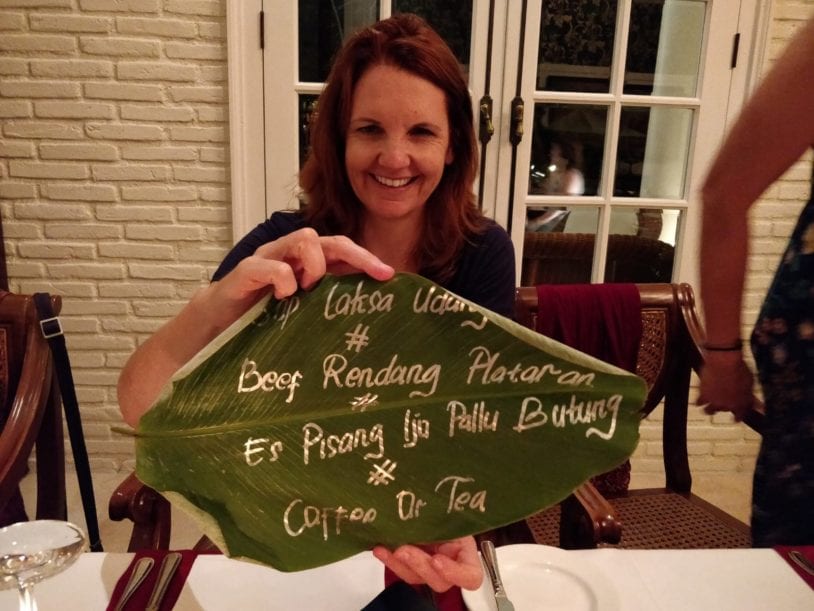 Laksa Udang
#
Beef Rendang Plataran
#
Es Pisang Ijo Pallu Butung
#
Coffee Or Tea